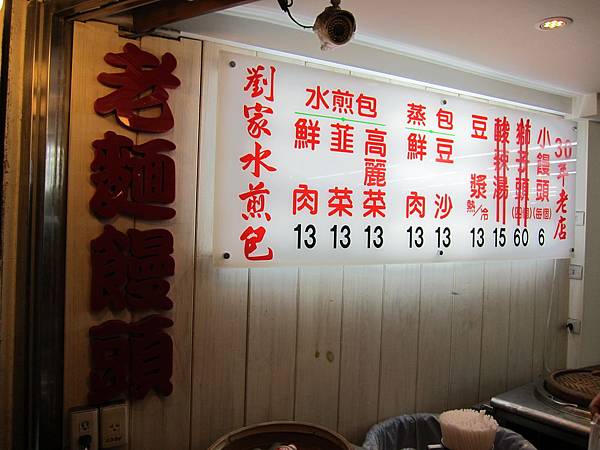 老麵饅頭
劉家水煎包
水煎包
鮮肉 13
韮菜 13
高麗菜 13
蒸包
鮮肉 13
豆沙 13
豆漿 熱/冷 13
酸辣湯 15
獅子頭(四個) 60
小饅頭(每個) 6
30年老店